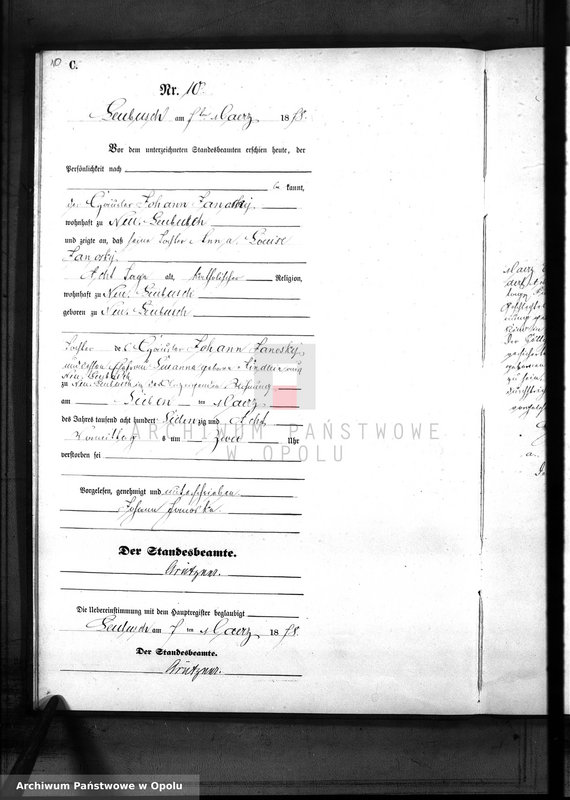 10 C.
Nr. 10.
Leubusch am 7ten Maerz 1878.
Vor dem unterzeichneten Standesbeamten erschien heute, der
Persönlichkeit nach
be kannt,
der Gärtner Johann Janosky
wohnhaft zu Neu-Leubusch
und zeigte an, daß seine Tochter Anna Louise
Janosky.
Acht Tage alt, katholischer Religion,
wohnhaft zu Neu-Leubusch
geboren zu Neu-Leubusch
Tochter des Gärtner Johann Janosky
und dessen Ehefrau Susanna geborne
Neu-Leubusch
zu Neu-Leubusch in der Wohnung
am Sieben ten Maerz
des Jahres tausend acht hundert Siebenzig und Acht
Vormittags um zwei Uhr
verstorben sei
Vorgelesen, genehmigt und unterschrieben
Johann
Der Standesbeamte.
Die Uebereinstimmung mit dem Hauptregister beglaubigt
Leubusch am 7 ten Maerz 1878.
Der Standesbeamte.
ARCHIWUM PAŃSTWOWE
W OPOLU
Archiwum Państwowe w Opolu